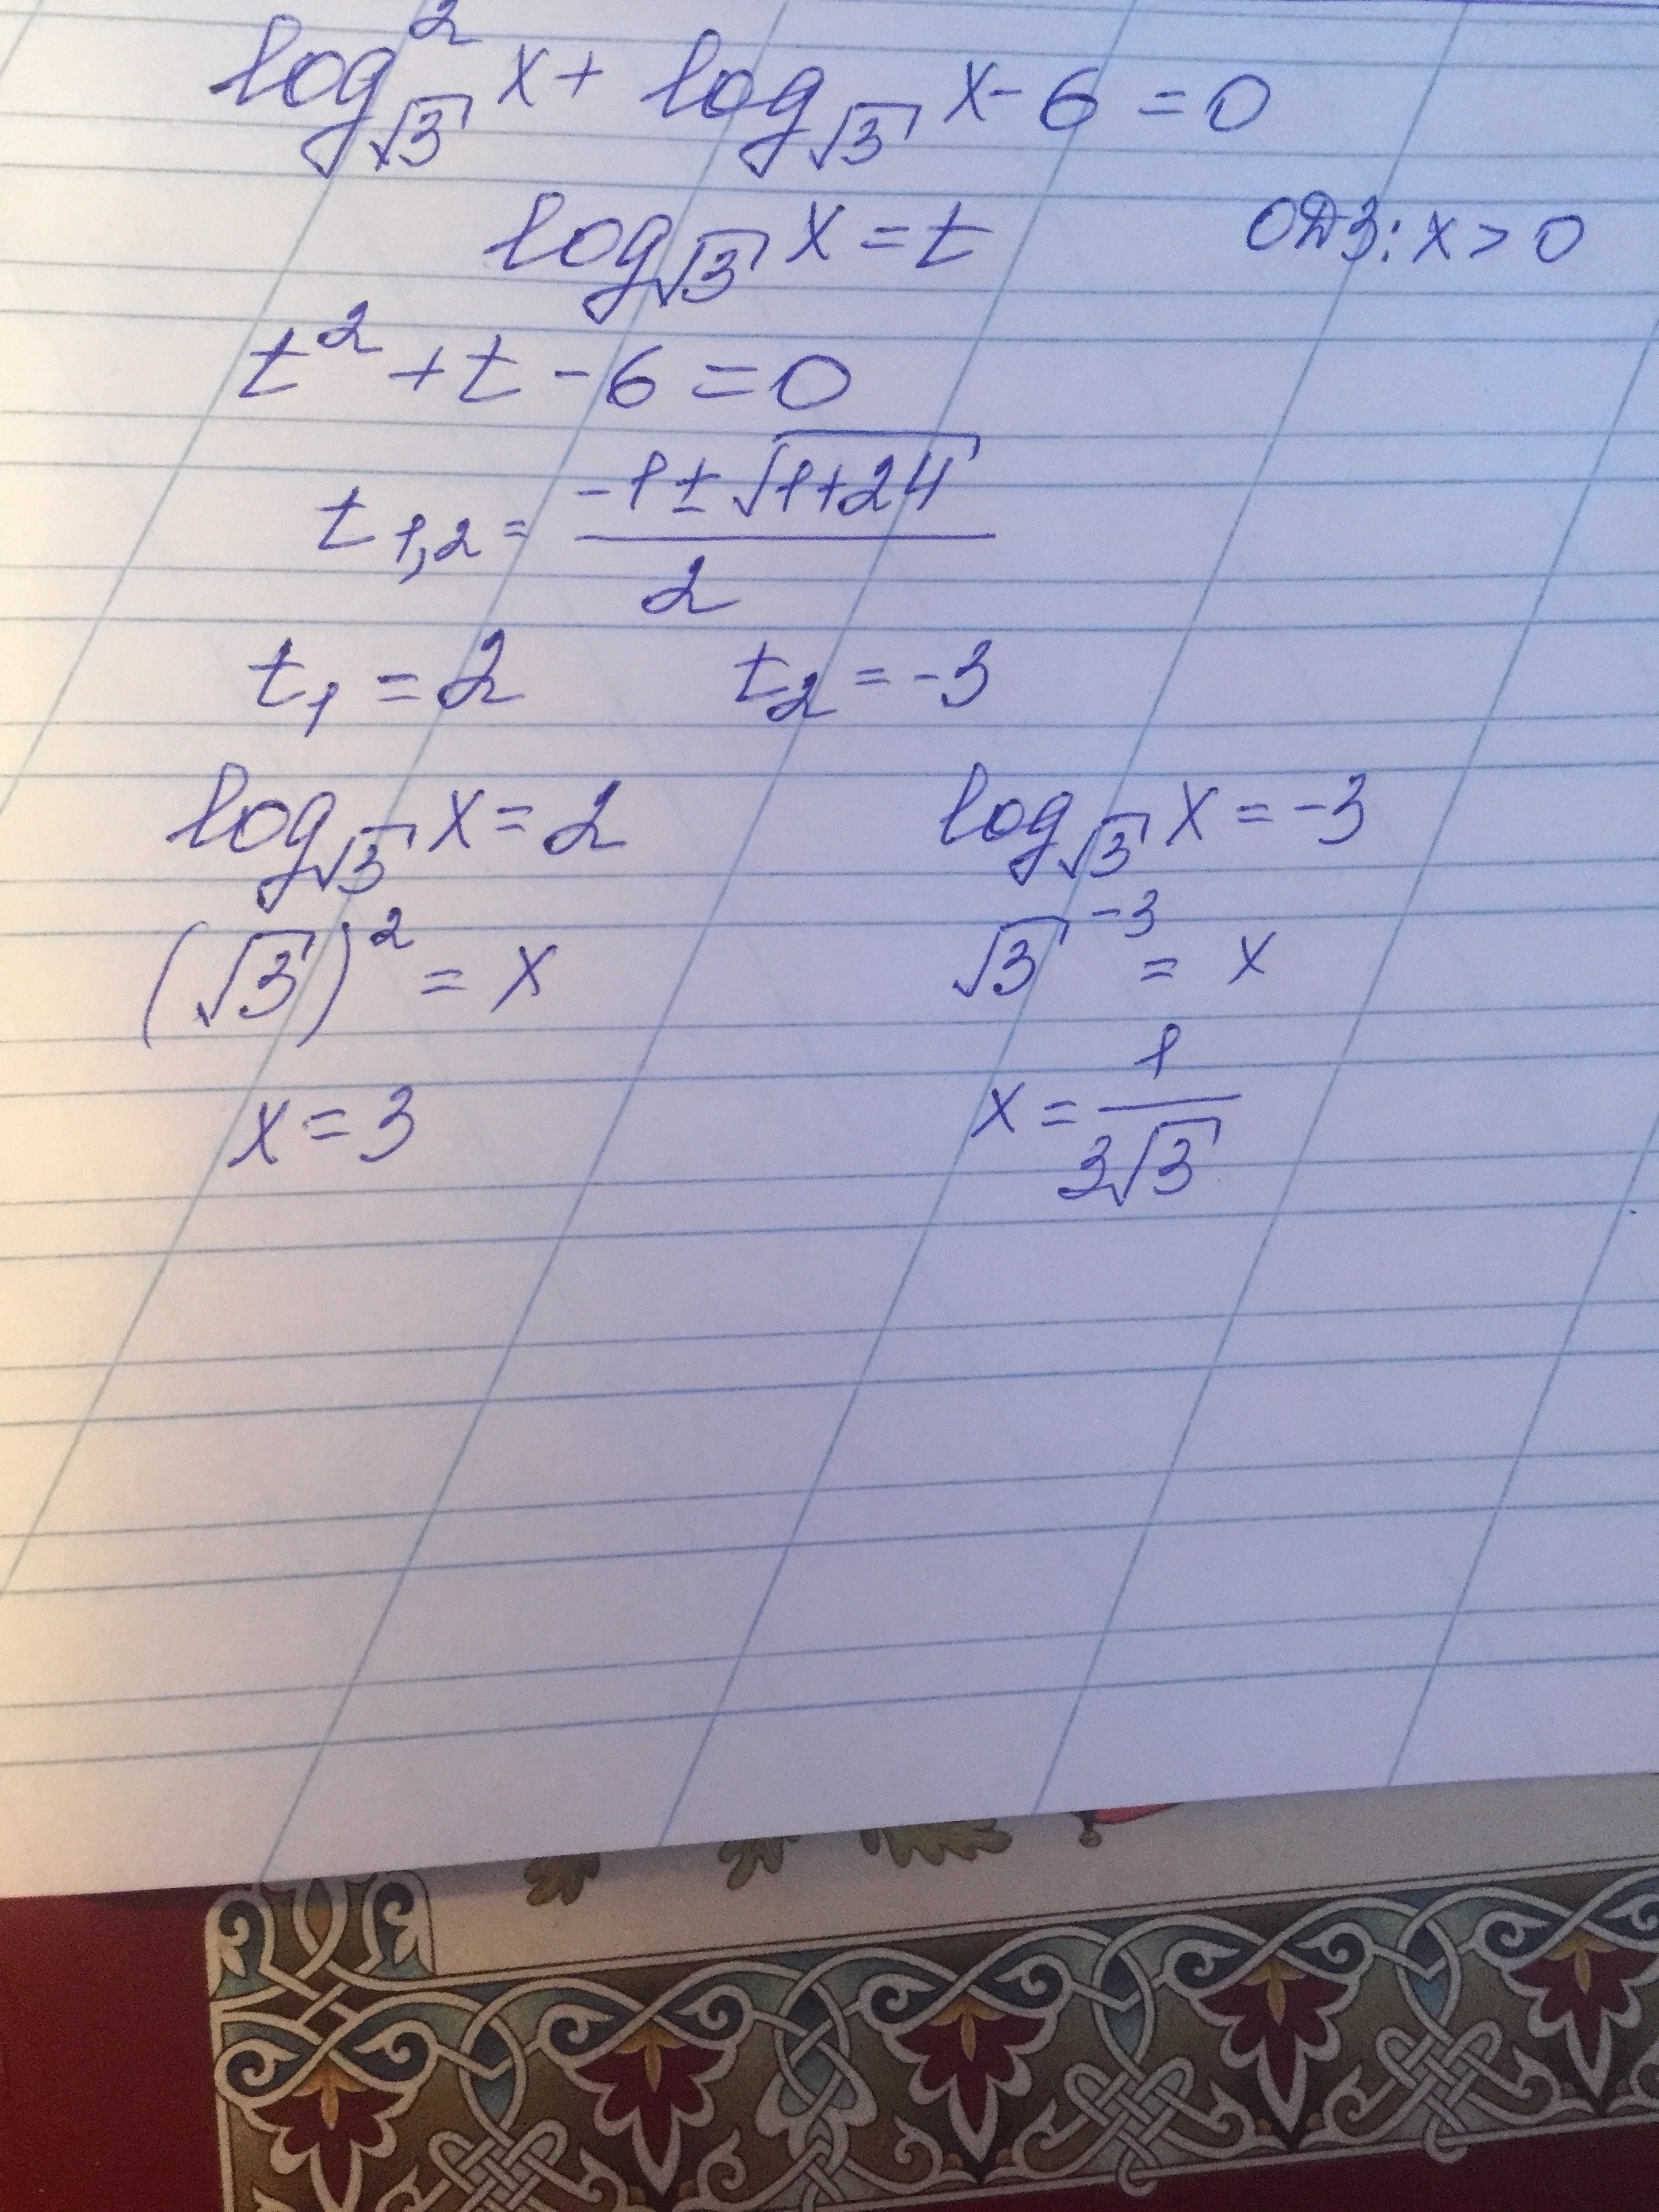 log²_√3 x + log_√3 x - 6 = 0
log_√3 x = t ОДЗ: x > 0
t² + t - 6 = 0
t₁,₂ = (-1 ± √(1+24)) / 2
t₁ = 2 t₂ = -3
log_√3 x = 2 log_√3 x = -3
(√3)² = x √3⁻³ = x
x = 3 x = 1 / (3√3)